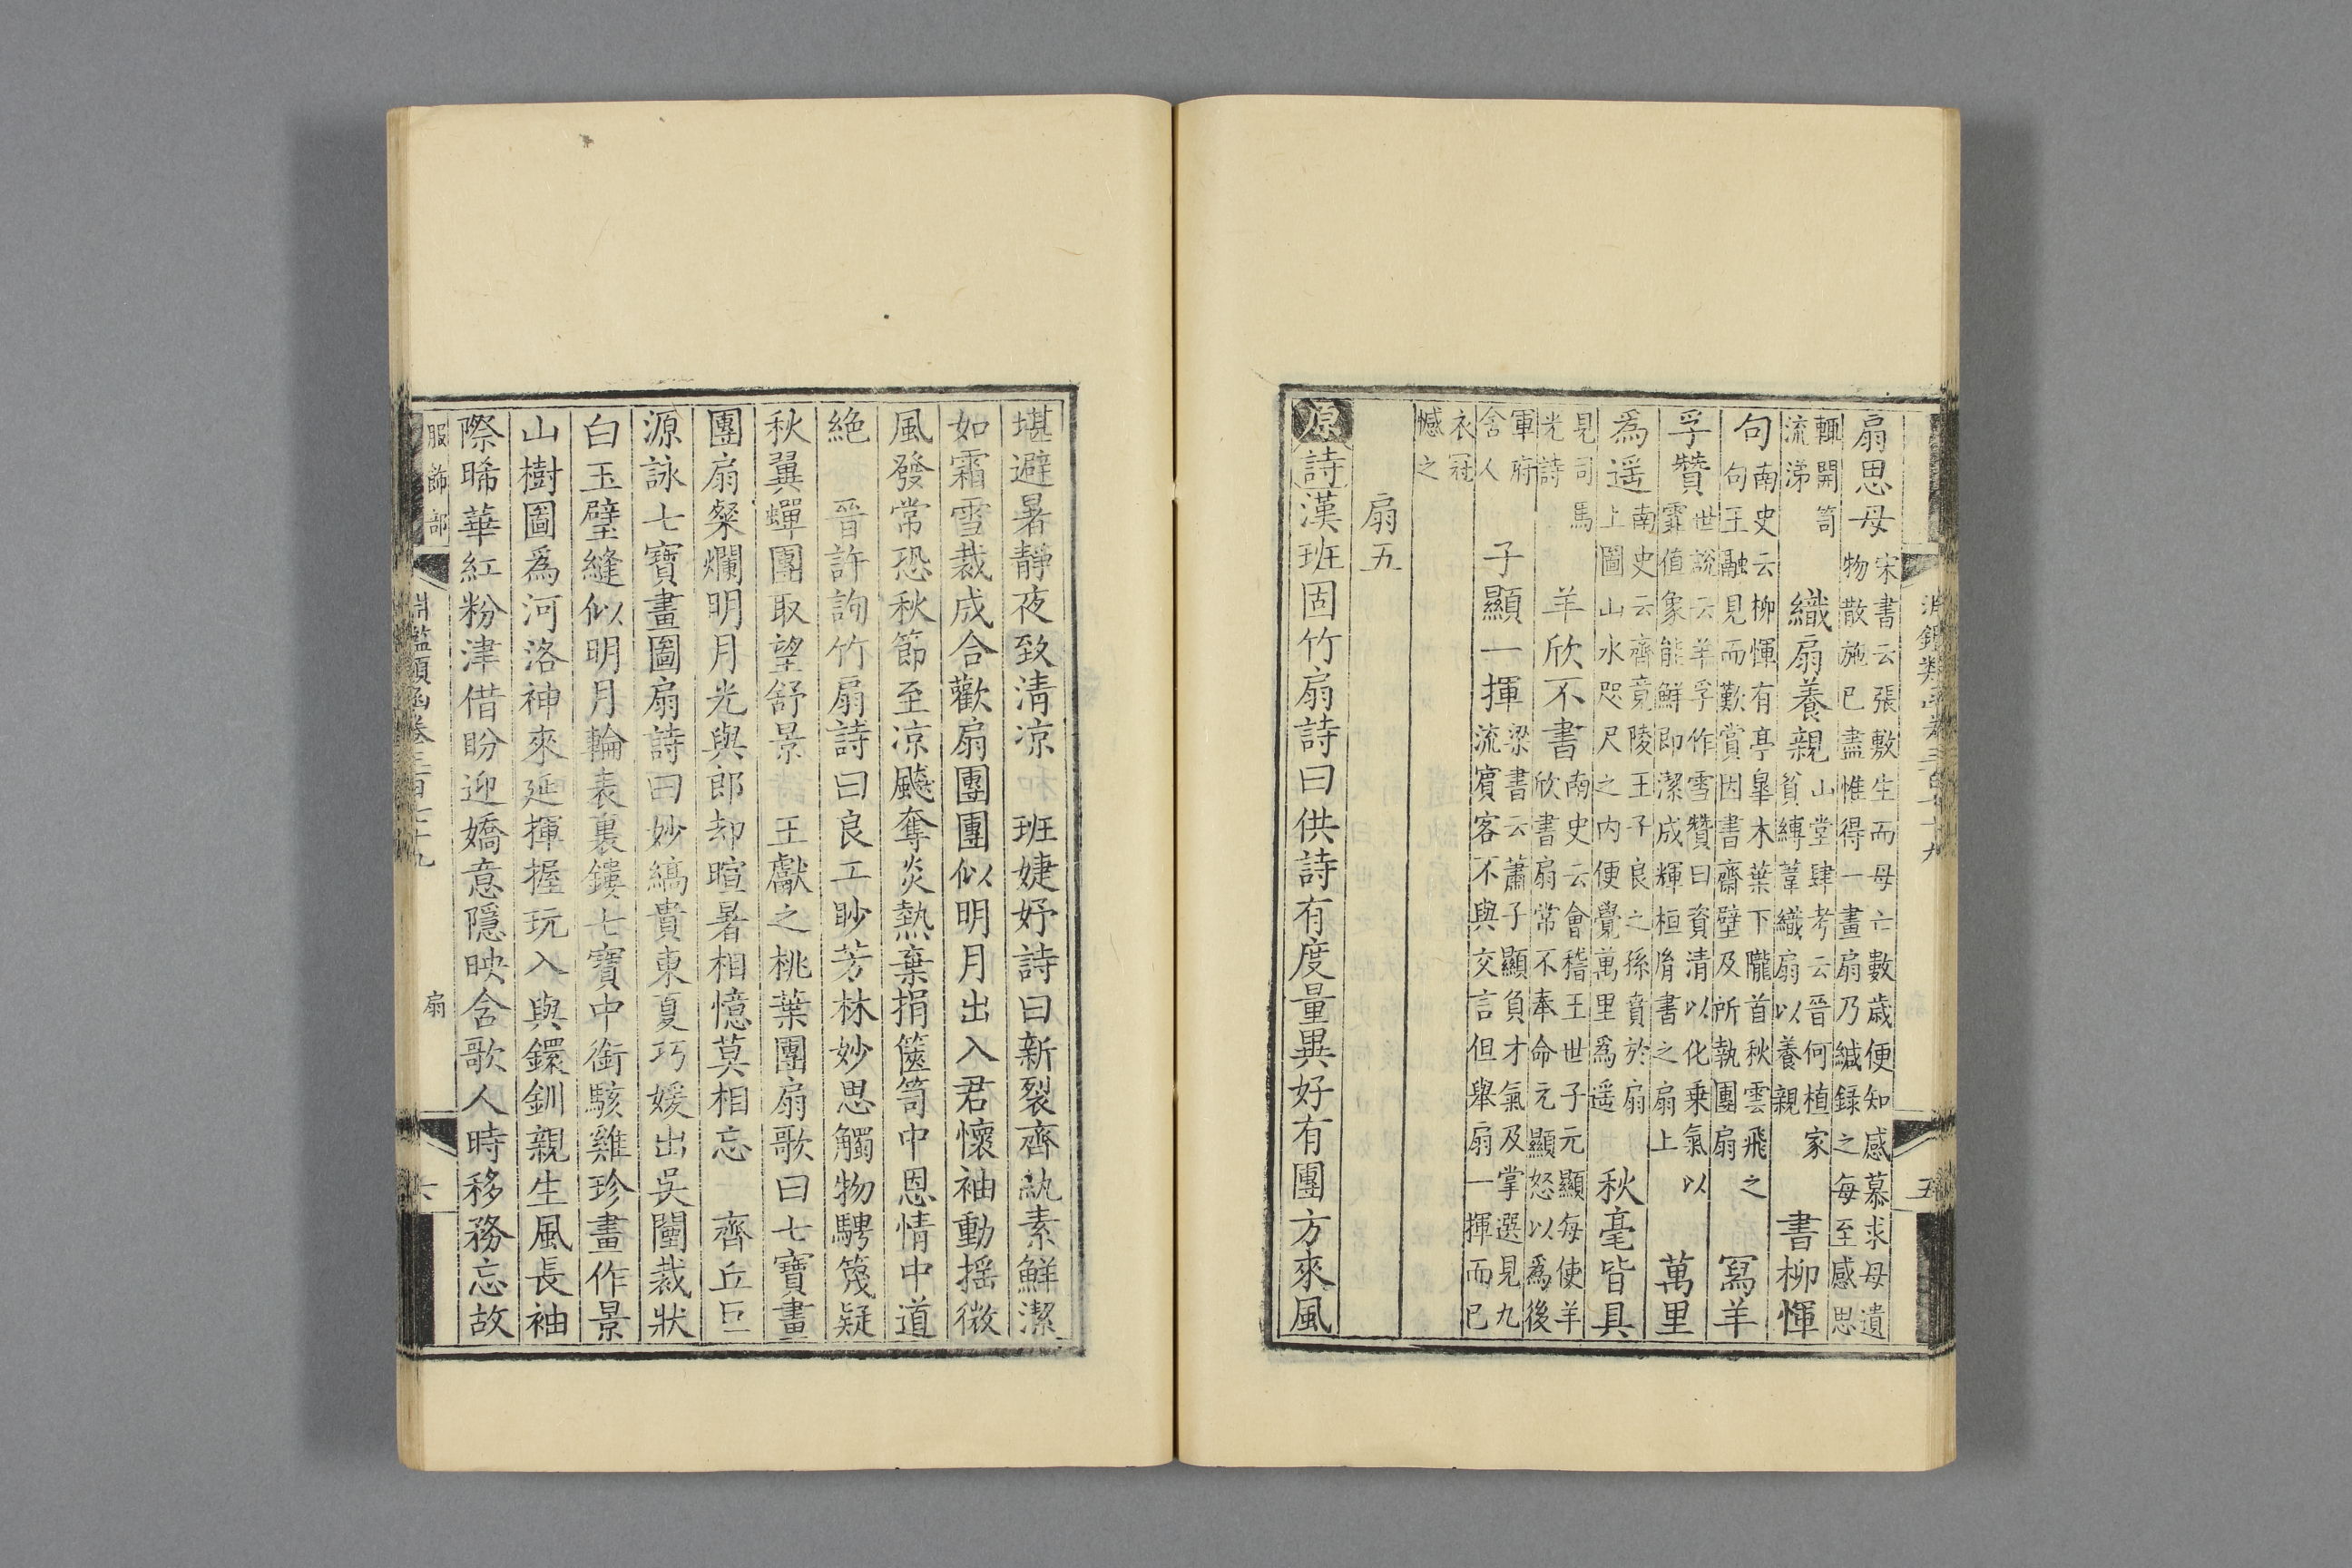 淵鑑類函卷三百七十九
五
扇思母宋書云張敷生而母亡數歲便知感慕求母遺物散施已盡惟得一畫扇乃緘録之每至感思
輒開笥流涕 織扇養親山堂肆考云晉何植家貧縛葦織扇以養親 書柳惲
句南史云柳惲有亭臯木葉下隴首秋雲飛之句王融見而歎賞因書齋壁及所執團扇 寫羊
孚贊世說云羊孚作雪贊曰資清以化乗氣以霏值象能鮮即潔成輝桓脩書之扇上 萬里
為遥南史云齊竟陵王子良之孫賁於扇上圖山水咫尺之内便覺萬里爲遥 秋毫皆具
見司馬光詩 羊欣不書南史云會稽王世子元顯每使羊欣書扇常不奉命元顯怒以爲後
軍府舍人 子顯一揮梁書云蕭子顯負才氣及掌選見九流賓客不與交言但舉扇一揮而已
衣冠憾之
扇五
原詩漢班固竹扇詩曰供詩有度量異好有團方來風
堪避暑靜夜致清凉 班婕妤詩曰新裂齊紈素鮮潔
如霜雪裁成合歡扇團團似明月出入君懷袖動揺微
風發常恐秋節至凉飇奪炎熱棄捐篋笥中恩情中道
絶 晉許詢竹扇詩曰良工眇芳林妙思觸物騁篾疑
秋翼蟬團取望舒景 王獻之桃葉團扇歌曰七寶畫
團扇粲爛明月光與郎却暄暑相憶莫相忘 齊丘巨
源詠七寶畫圖扇詩曰妙縞貴東夏巧媛出吳闉裁狀
白玉璧縫似明月輪表裏鏤七寶中銜駭雞珍畫作景
山樹圖爲河洛神來延揮握玩入與鐶釧親生風長袖
際晞華紅粉津借盼迎嬌意隱映含歌人時移務忘故
服飾部
淵鑑類函卷三百七十九
扇
六